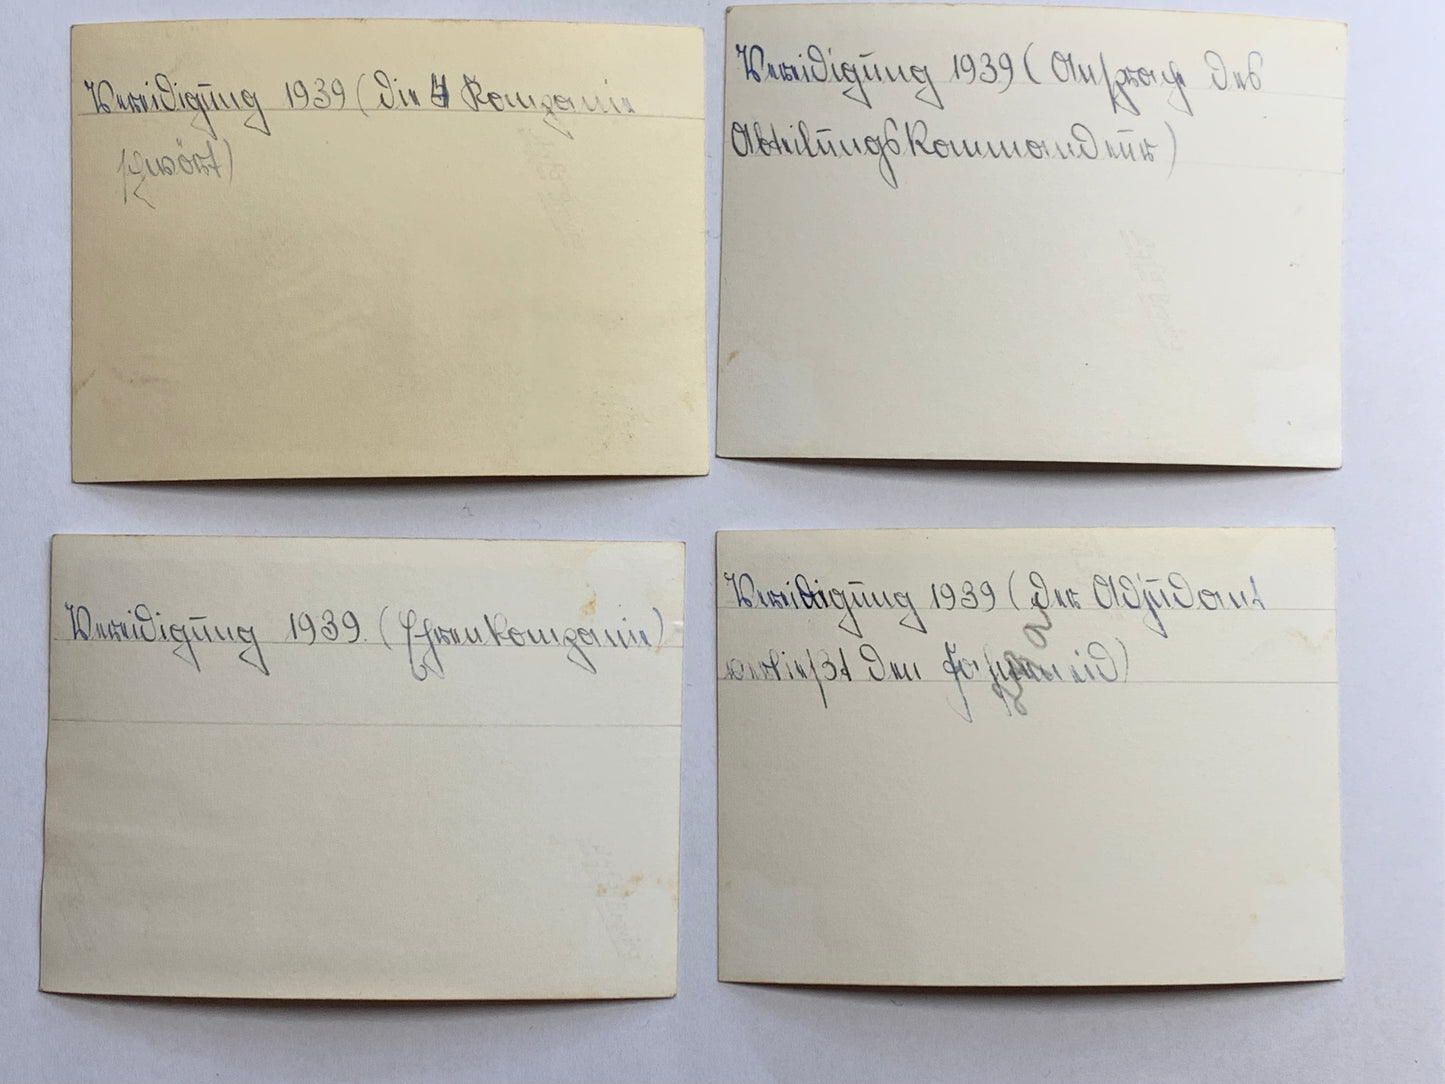 Vereidigung 1939 (die 4 Kompanie
schwört)
Vereidigung 1939 (Ansprache des
Abteilungskommandeur)
Vereidigung 1939. (Ehrenkompanie)
Vereidigung 1939 (der Adjudant
verließt den Fahneneid)